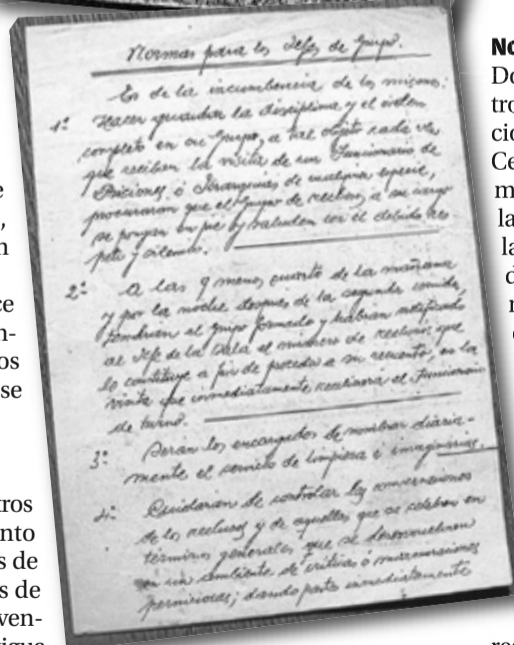 Normas para los Jefes de Grupo.
Es de la incumbencia de los mismos:
1º Hacer guardar la disciplina y el orden
completo en su Grupo, a tal objeto cada vez
que reciban la visita de un Funcionario de
Prisiones ó Jerarquías de cualquier especie,
procuraran que el Grupo de reclusos a su cargo
se pongan en pie y saluden con el debido res-
peto y silencio.
2º A las 9 menos cuarto de la mañana
y por la noche después de la segunda comida,
tendrán al grupo formado y habrán notificado
al Jefe de la Sala el número de reclusos que
lo constituye a fin de proceder a su recuento, en la
visita que inmediatamente realizará el Funcionario
de turno.
3º Serán los encargados de nombrar diaria-
mente el servicio de limpieza é imaginarias.
4º Cuidarán de controlar las conversaciones
de los reclusos y de aquellas que se celebren en
términos generales, que se desenvuelvan
en un ambiente de críticas ó murmuraciones
perniciosas; dando parte inmediatamente